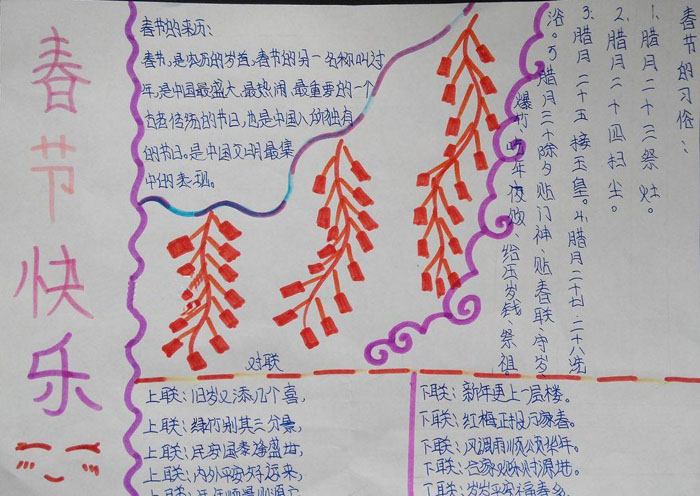 春节快乐
春节的来历:
春节,是农历的岁首,春节的另一名称叫过
年,是中国最盛大、最热闹、最重要的一个
古老传统的节日,也是中国人所独有
的节日。是中国文明最集
中的表现。
春节的习俗:
1. 腊月二十三祭灶。
2. 腊月二十四扫尘。
3. 腊月二十五接玉皇。4. 腊月二十七、二十八洗
浴。5. 腊月三十除夕贴门神、贴春联、守岁、
爆竹、吃年夜饭、给压岁钱、祭祖。
对联
上联:旧岁又添几个喜,
上联:绿竹别其三分景,
上联:民安国泰逢盛世,
上联:内外平安好运来,
上联:
下联:新年更上一层楼。
下联:红梅正报万家春。
下联:风调雨顺颂华年。
下联:合家欢乐财源进。
下联:岁岁平安福春多